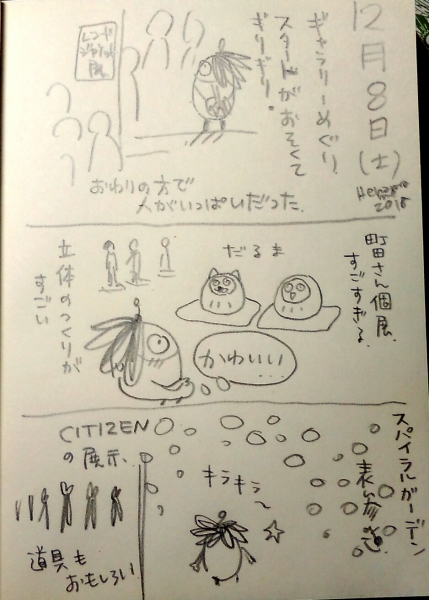 12月8日(土)
ギャラリーめぐり、
スタートがおそくて
ぎりぎり。
レコード
ジャケット
展
おわりの方で
人がいっぱいだった。
2018
町田さん個展、
すごすぎる。
だるま
かわいい…
立体のつくりが
すごい
スパイラルガーデン
表参道
キラキラ〜
CITIZEN
の展示、
道具も
おもしろい